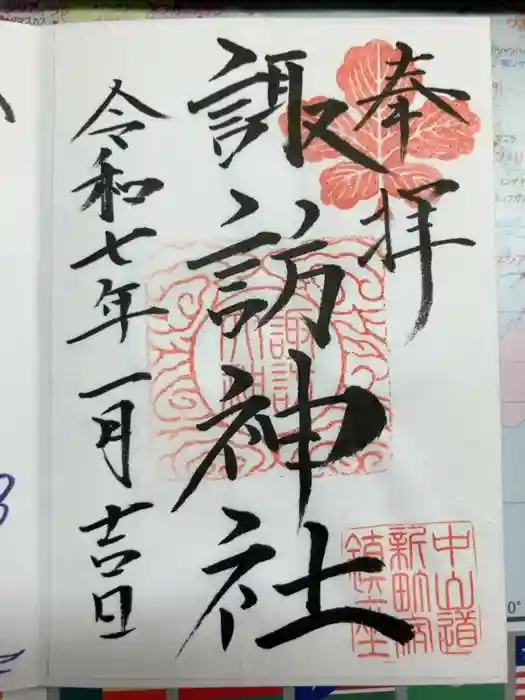 奉拝
諏訪神社
令和七年一月吉日
中山道
新町宿
鎮座
0°